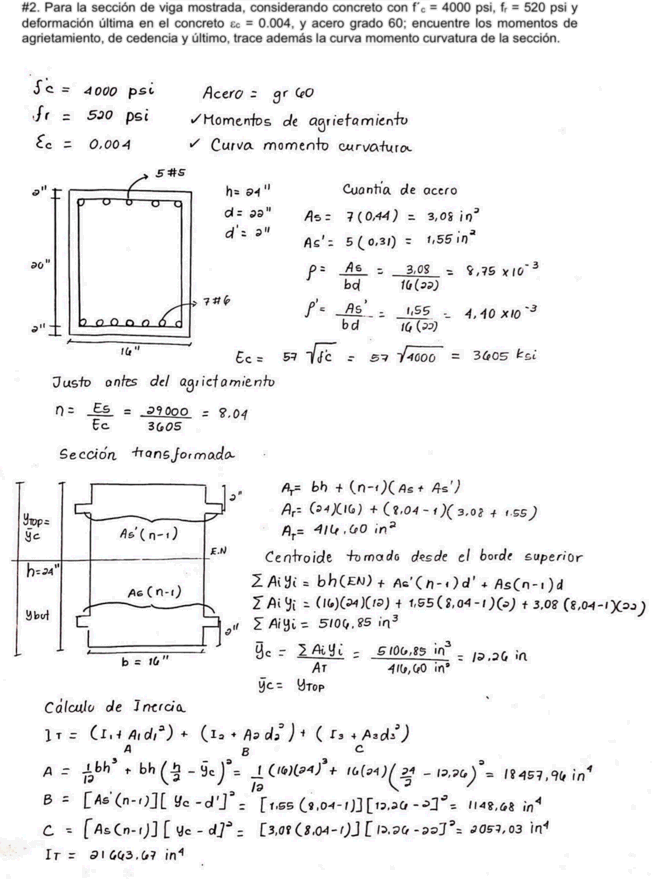 #2. Para la sección de viga mostrada, considerando concreto con f´c = 4000 psi, fr = 520 psi y
deformación última en el concreto εc = 0.004, y acero grado 60; encuentre los momentos de
agrietamiento, de cedencia y último, trace además la curva momento curvatura de la sección.
f'c = 4000 psi    Acero = gr 60
fr = 520 psi    ✓Momentos de agrietamiento
Ec = 0.004    ✓ Curva momento curvatura
5#5
2"
20"
2"
7#6
16"
h= 24"
d= 22"
d'= 2"
Cuantía de acero
As = 7(0,44) = 3,08 in²
As' = 5(0,31) = 1,55 in²
ρ = As/bd = 3,08/16(22) = 8,75 x10⁻³
ρ' = As'/bd = 1,55/16(22) = 4,40 x10⁻³
Ec = 57 √f'c = 57 √4000 = 3605 ksi
Justo antes del agrietamiento
n = Es/Ec = 29000/3605 = 8.04
Sección transformada
YTOP = ȳc
h=24"
Ybot
As'(n-1)
E.N
As(n-1)
2"
2"
b = 16"
AT= bh + (n-1)(As + As')
AT= (24)(16) + (8,04-1)(3,08 + 1.55)
AT= 416,60 in²
Centroide tomado desde el borde superior
∑ AiYi = bh(EN) + As'(n-1)d' + As(n-1)d
∑ AiYi = (16)(24)(12) + 1,55(8,04-1)(2) + 3,08 (8,04-1)(22)
∑ AiYi = 5106,85 in³
ȳc = ∑ AiYi/AT = 5106,85 in³/416,60 in² = 12.26 in
ȳc = YTOP
Cálculo de Inercia
IT = (I1 + A1d1²) + (I2 + A2d2²) + (I3 + A3d3²)
A    B    C
A = 1/12 bh³ + bh(h/2 - ȳc)² = 1/12 (16)(24)³ + 16(24)(24/2 - 12,26)² = 18457,96 in⁴
B = [As'(n-1)][yc - d']² = [1.55 (8,04-1)][12,26 - 2]² = 1148,68 in⁴
C = [As(n-1)][yc - d]² = [3,08 (8,04-1)][12.26 - 22]² = 2057,03 in⁴
IT = 21663,67 in⁴